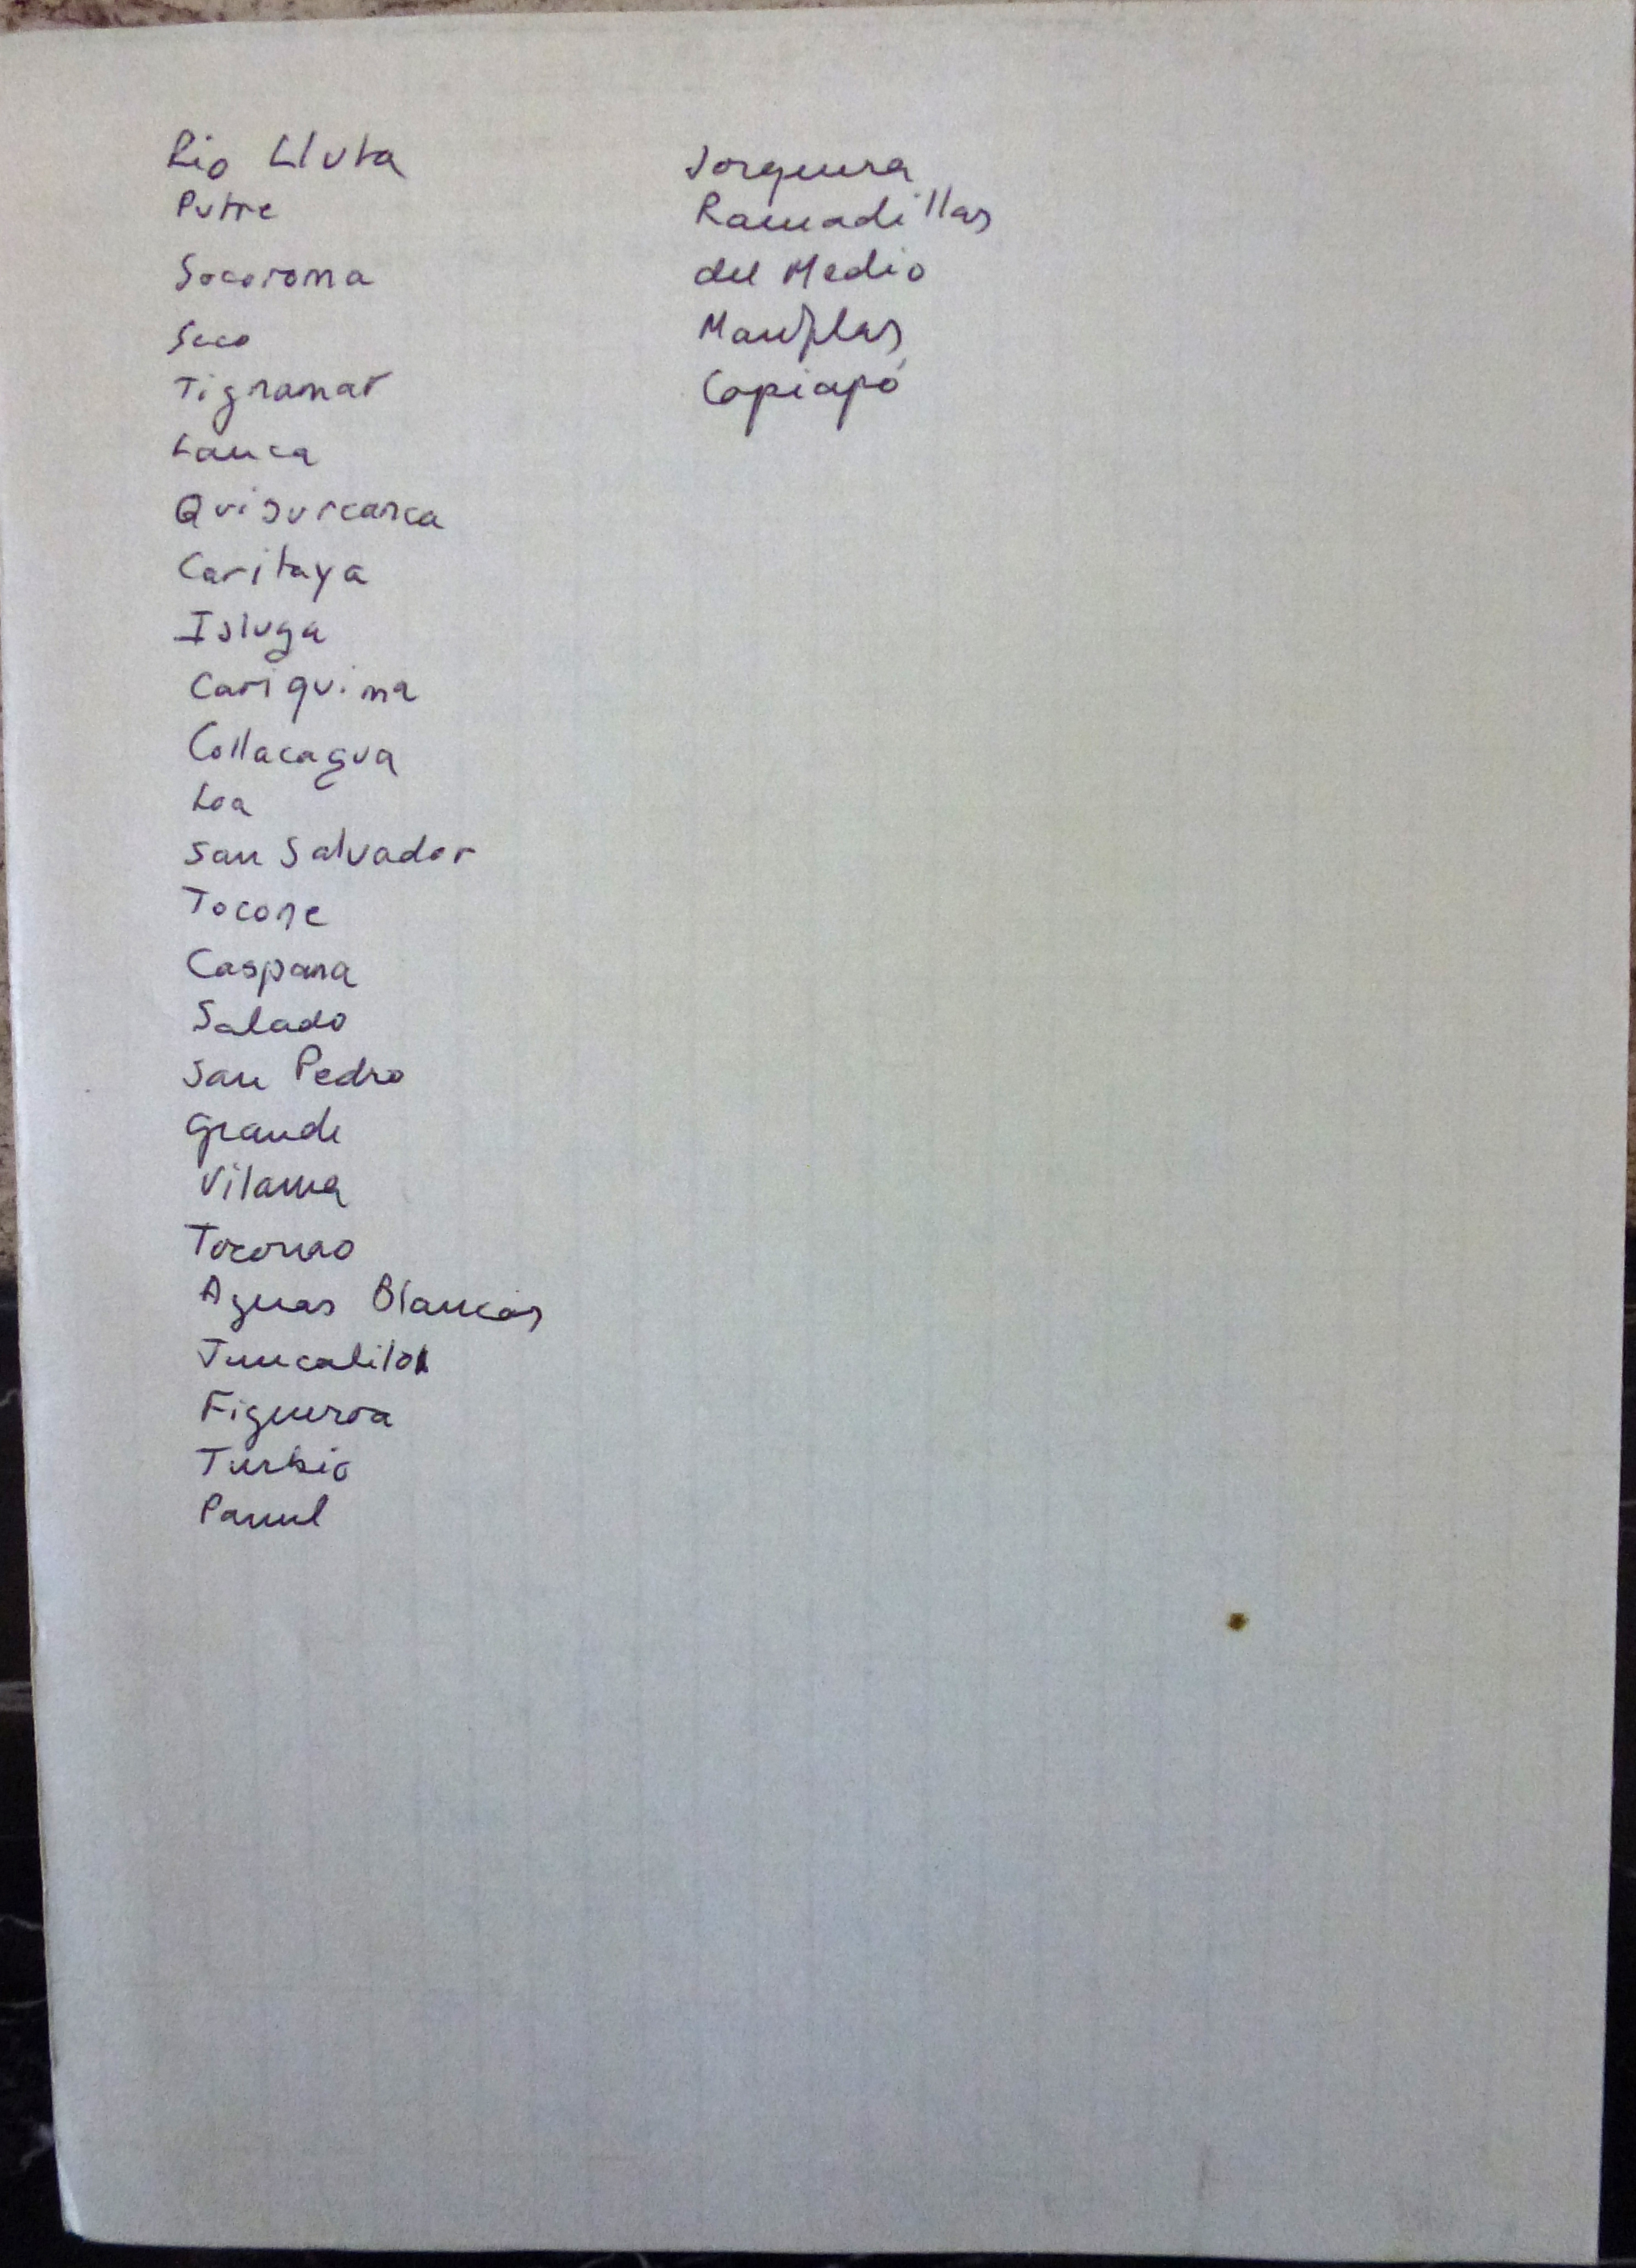 Rio Lluta
Putre
Socoroma
Seco
Tignamar
Lauca
Quisurcarca
Caritaya
Isluga
Cariquima
Collacagua
Loa
San Salvador
Toconce
Caspana
Salado
San Pedro
Grande
Vilama
Toconao
Aguas Blancas
Juncalito
Figueroa
Turbio
Pamul
Jorquera
Ramadillas
del Medio
Manflas
Copiapó